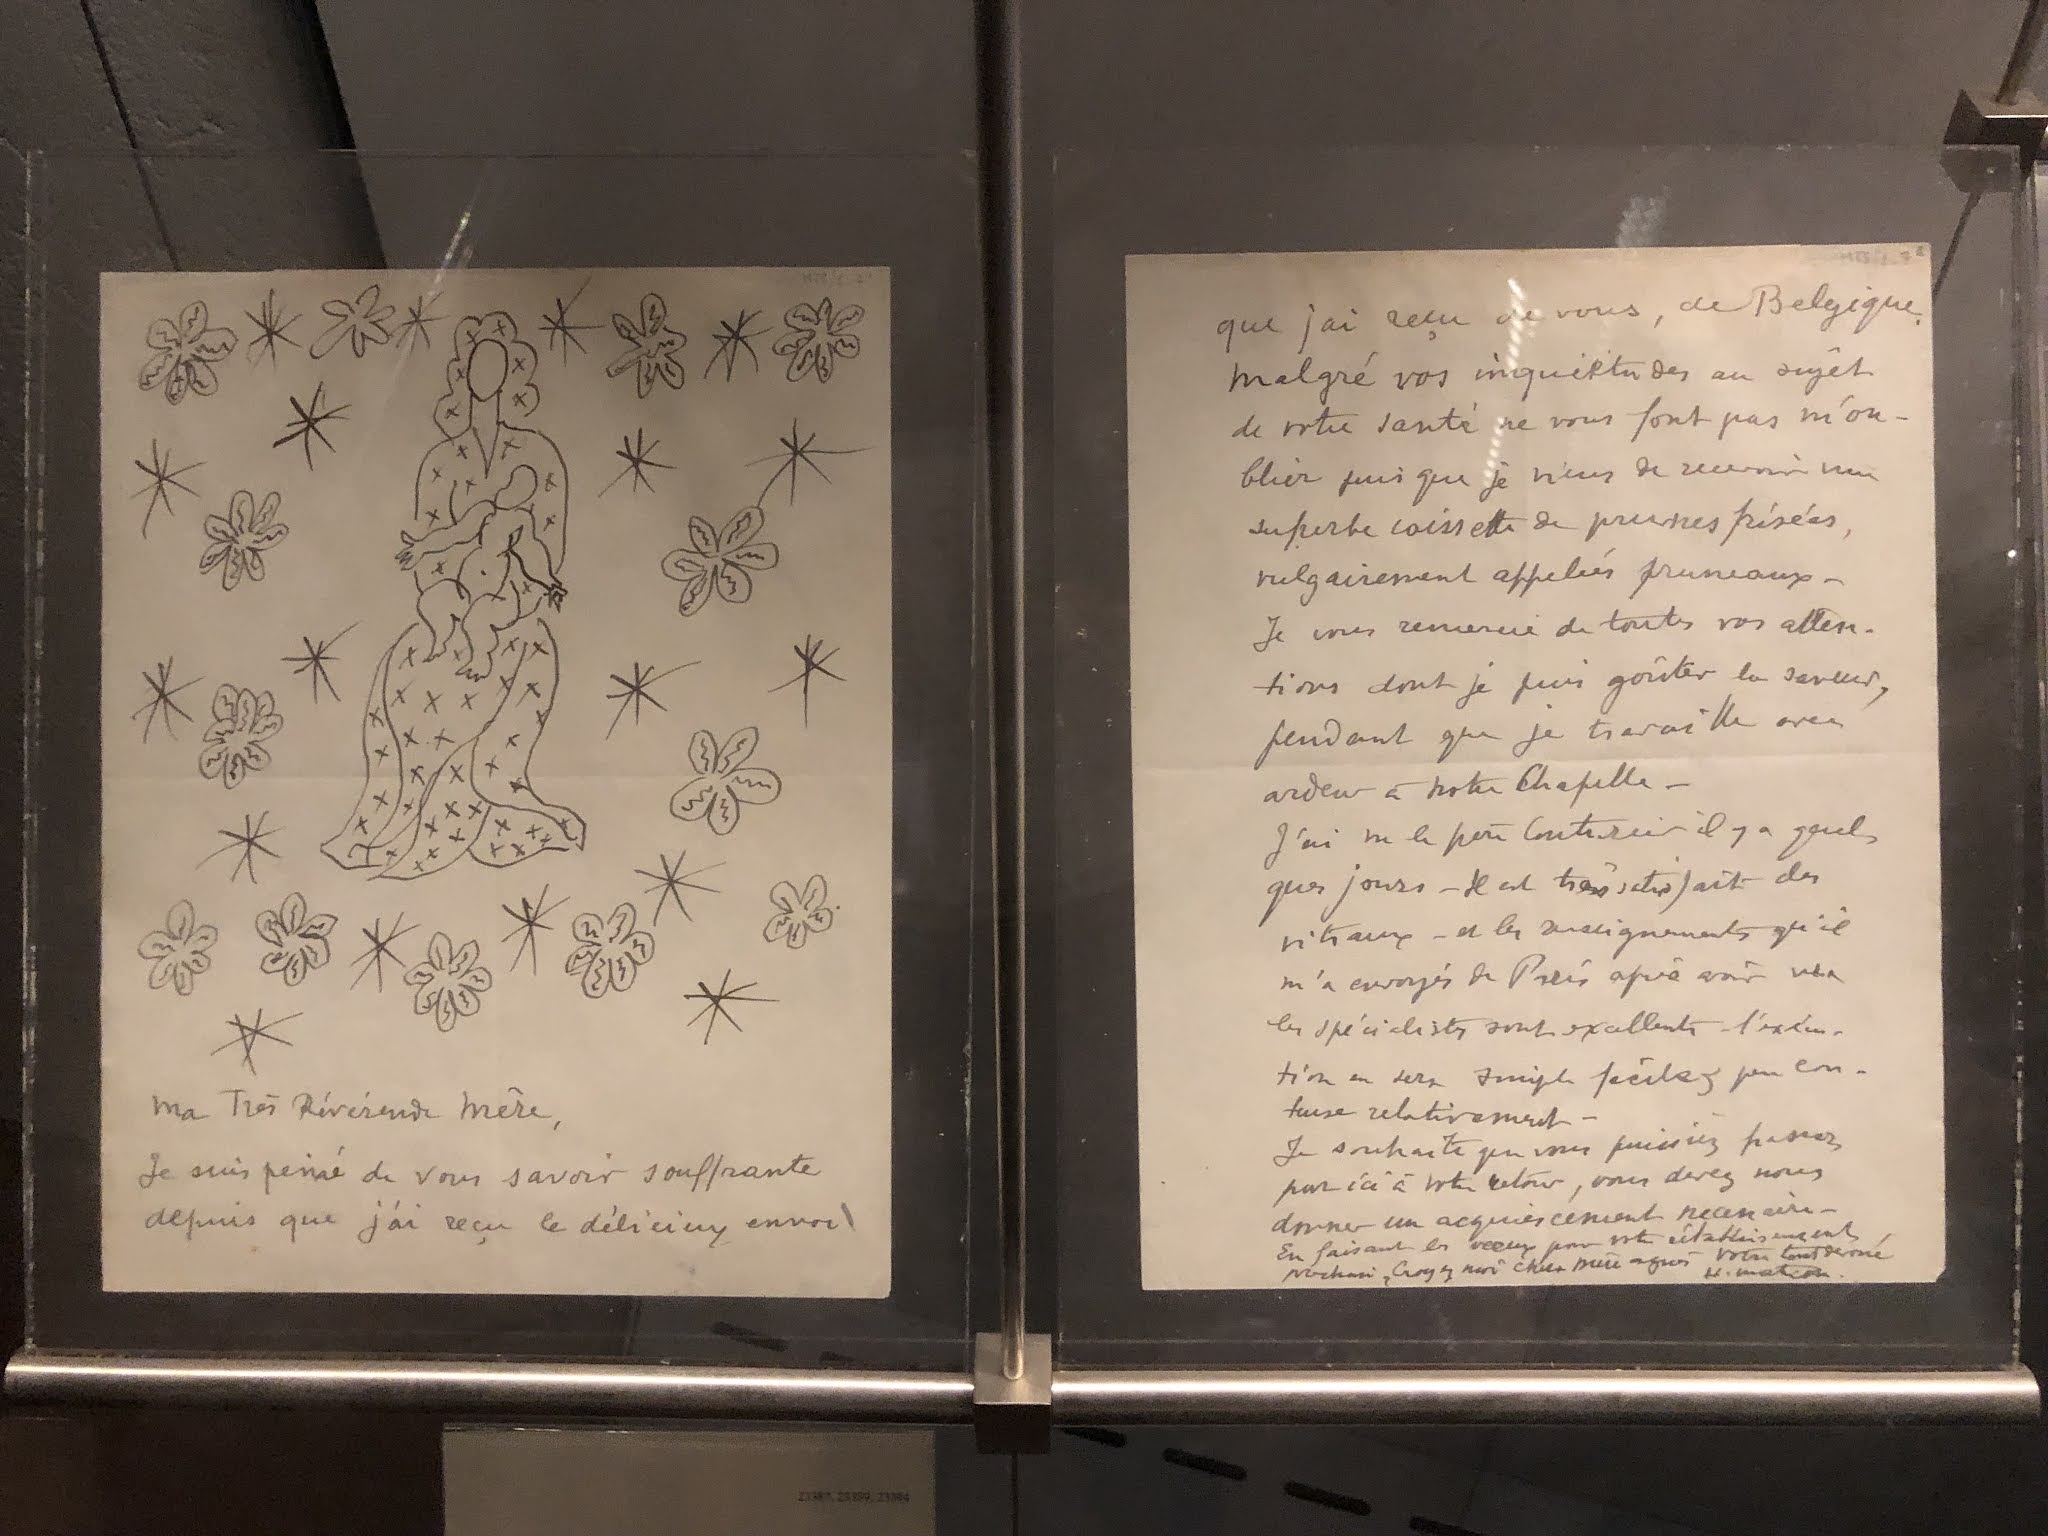 Ma Très Révérende Mère,
Je suis peiné de vous savoir souffrante
depuis que j'ai reçu le délicieux envoi
que j'ai reçu de vous, de Belgique.
Malgré vos inquiétudes au sujet
de votre santé ne vous font pas m'ou-
blier puis que je viens de recevoir une
superbe caissette de prunes frisées,
vulgairement appelées pruneaux -
Je vous remercie de toutes vos atten-
tions dont je puis goûter la saveur,
pendant que je travaille avec
ardeur à notre Chapelle -
J'ai vu le père Couturier il y a quel
ques jours - Il est très satisfait des
vitraux - et les renseignements qu'il
m'a envoyés de Paris après avoir vu
les spécialistes sont excellents - l'exécu-
tion en sera simple facile & peu cou-
teuse relativement -
Je souhaite que vous puissiez passer
par ici à votre retour, vous devez nous
donner un acquiescement nécessaire -
En faisant les voeux pour votre rétablissement
prochain, Croyez moi chère Mère Agnès votre tout dévoué
H. Matisse